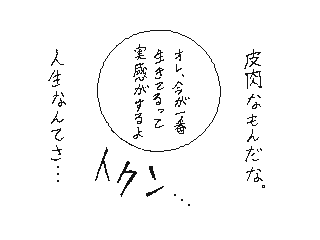 皮肉なもんだな。
オレ、今が一番
生きてるって
実感がするよ
人生なんてさ…
トクン…